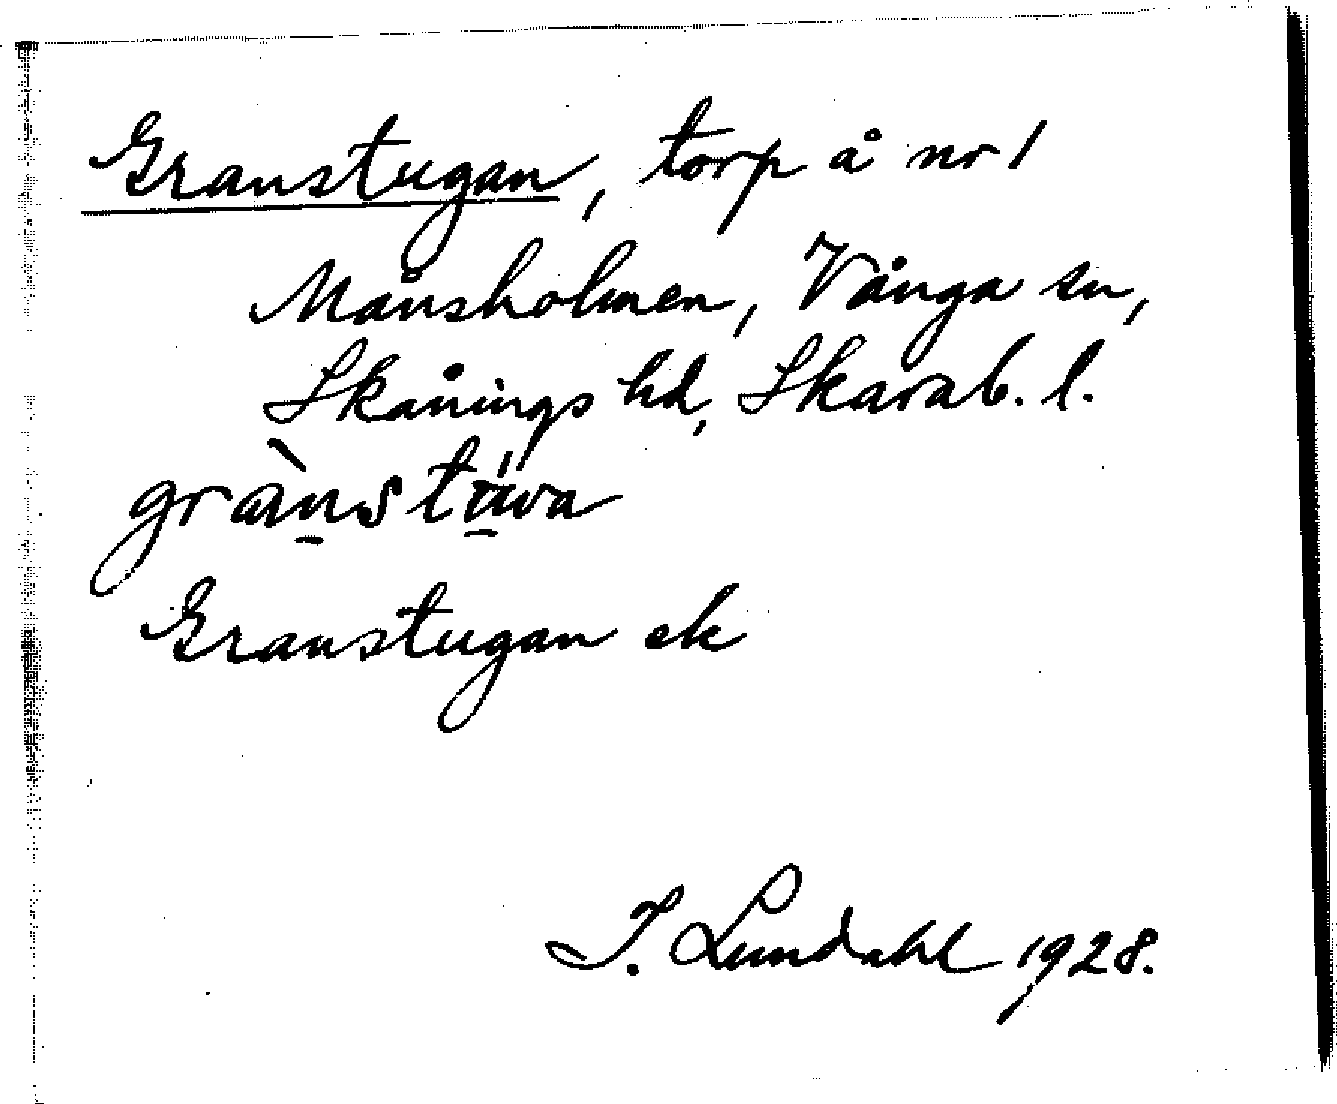 Granstugan, torp å nr 1
Månsholmen, Vånga sn,
Skånings hd, Skarab. l.
grànstúva
Granstugan ek
I. Lundahl 1928.